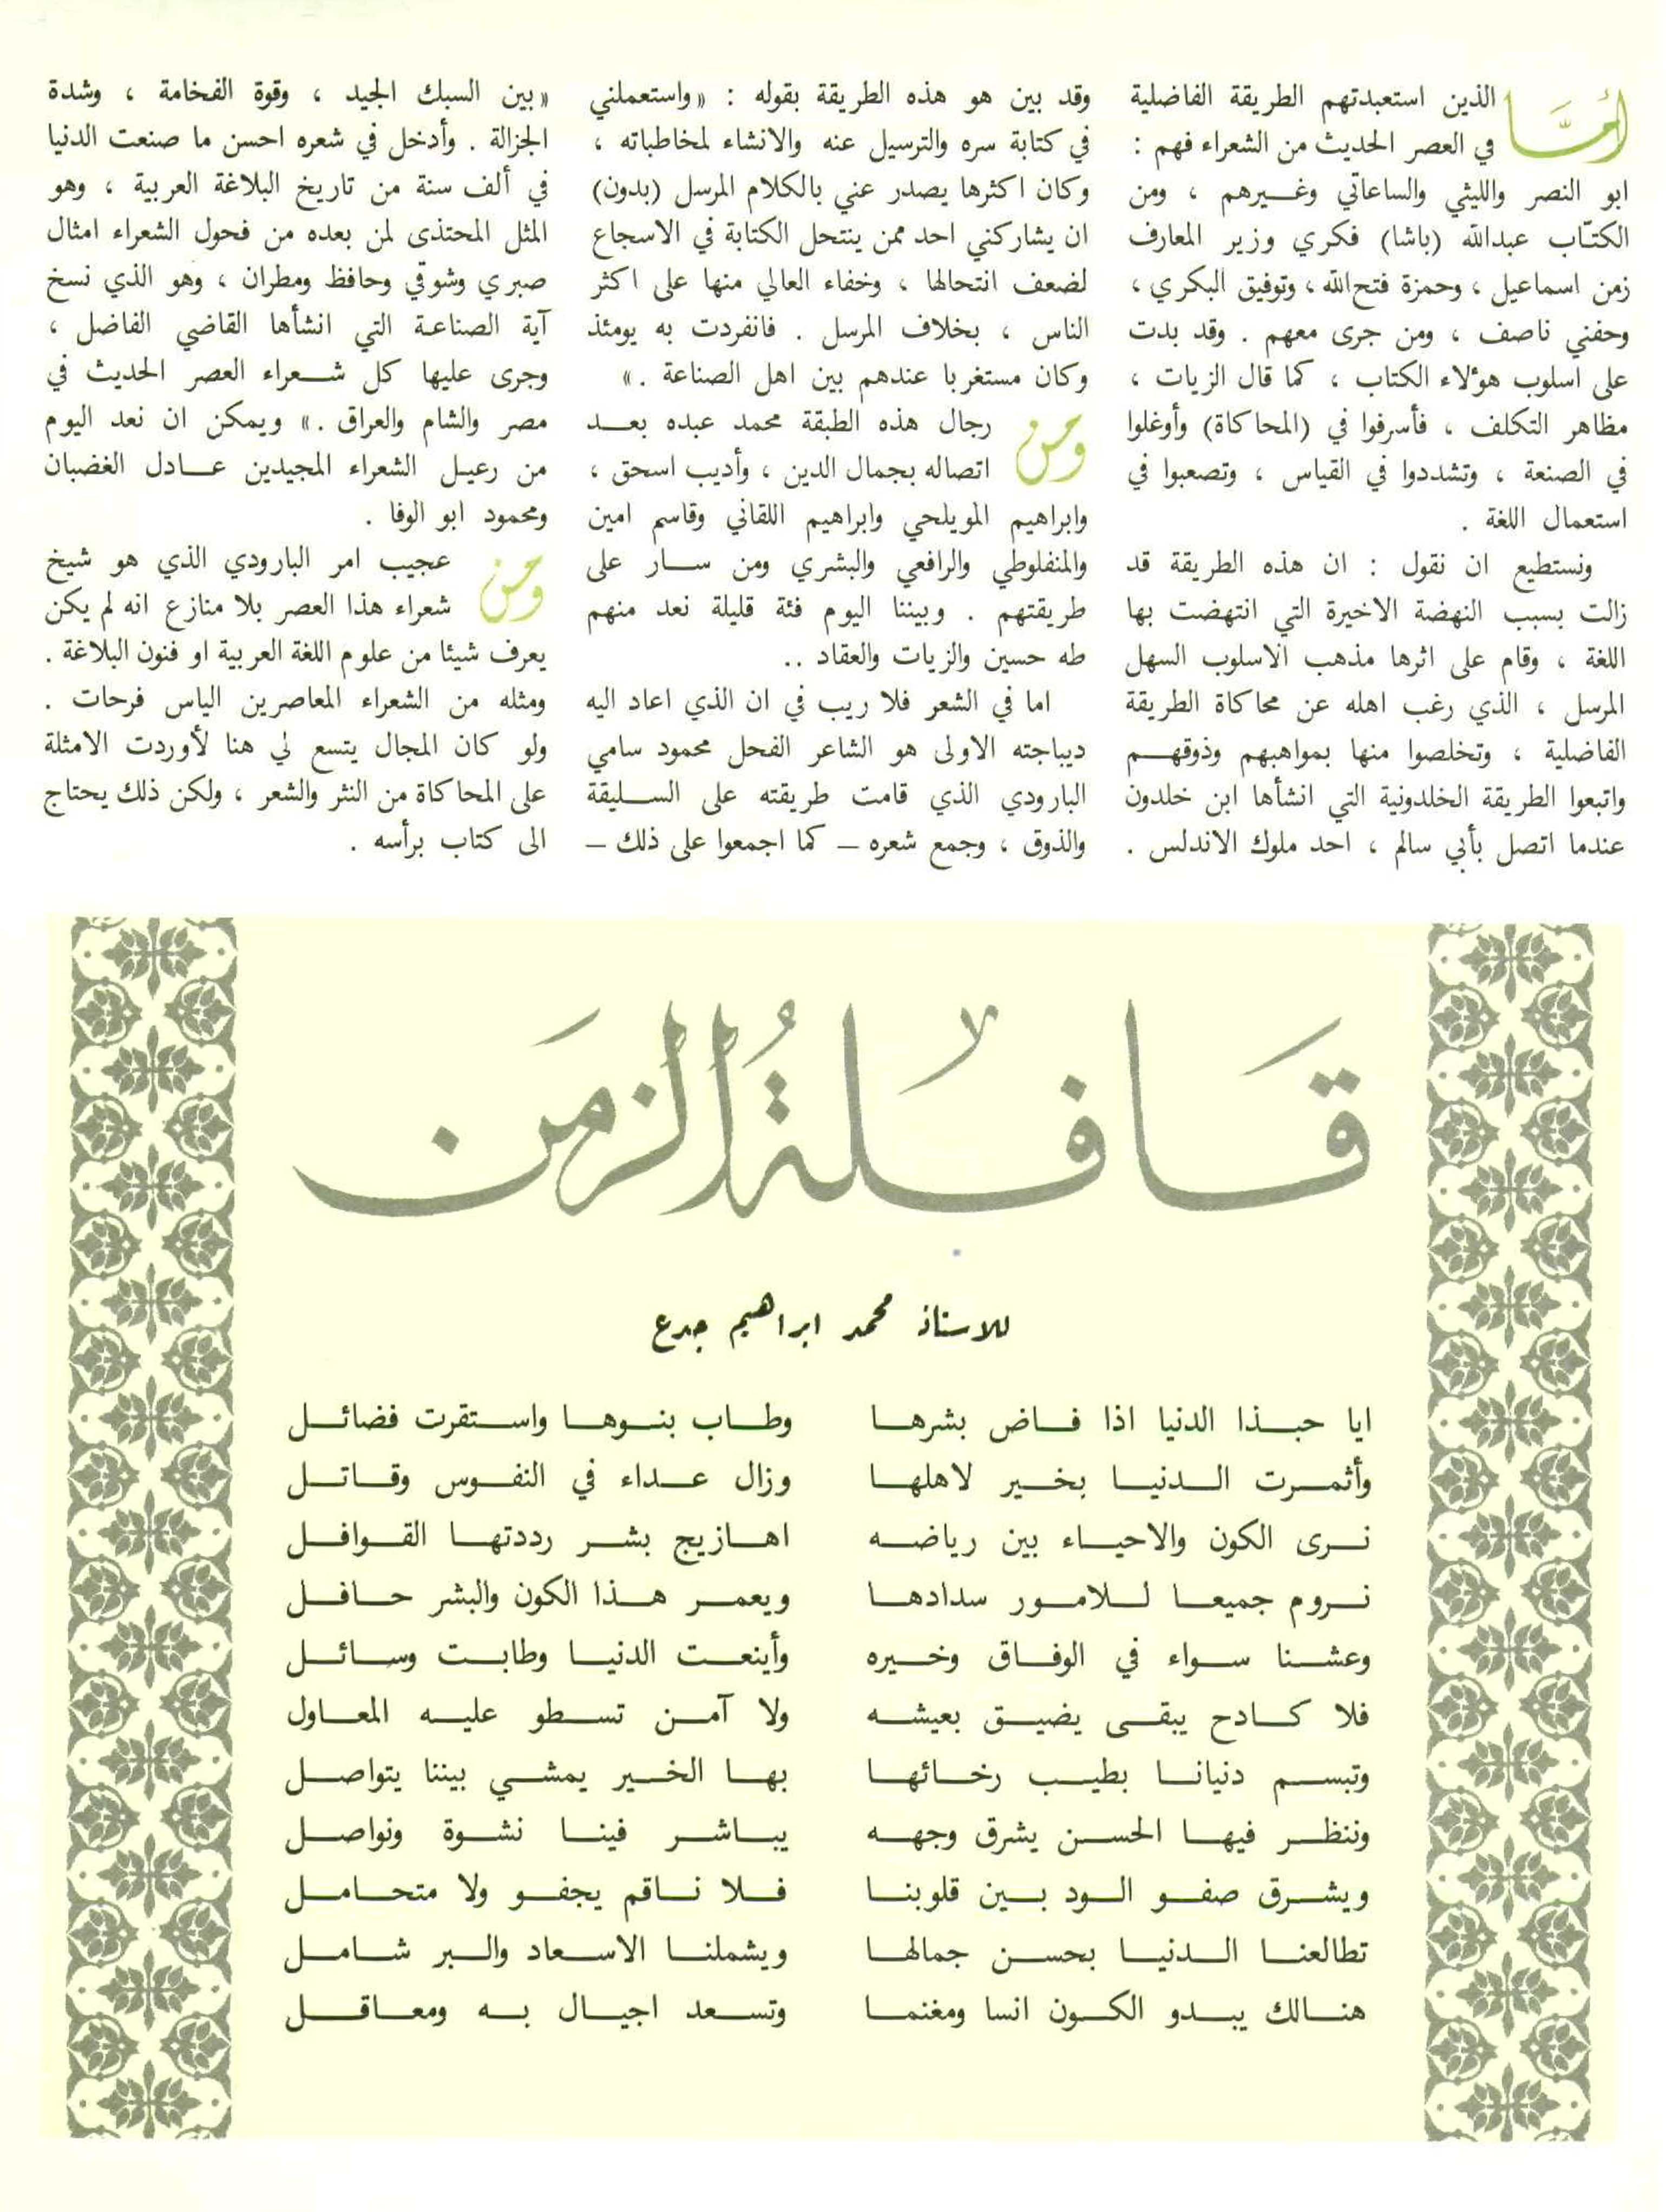 أمَّا الذين استعبدتهم الطريقة الفاضلية
في العصر الحديث من الشعراء فهم :
ابو النصر والليثي والساعاتي وغيرهم ، ومن
الكتّاب عبدالله (باشا) فكري وزير المعارف
زمن اسماعيل ، وحمزة فتح الله ، وتوفيق البكري ،
وحفني ناصف ، ومن جرى معهم . وقد بدت
على اسلوب هؤلاء الكتاب ، كما قال الزيات ،
مظاهر التكلف ، فأسرفوا في (المحاكاة) وأوغلوا
في الصنعة ، وتشددوا في القياس ، وتصعبوا في
استعمال اللغة .
ونستطيع ان نقول : ان هذه الطريقة قد
زالت بسبب النهضة الاخيرة التي انتهضت بها
اللغة ، وقام على اثرها مذهب الاسلوب السهل
المرسل ، الذي رغب اهله عن محاكاة الطريقة
الفاضلية ، وتخلصوا منها بمواهبهم وذوقهم
واتبعوا الطريقة الخلدونية التي انشأها ابن خلدون
عندما اتصل بأبي سالم ، احد ملوك الاندلس .
وقد بين هو هذه الطريقة بقوله : «واستعملني
في كتابة سره والترسيل عنه والانشاء لمخاطباته ،
وكان اكثرها يصدر عني بالكلام المرسل (بدون)
ان يشاركني احد ممن ينتحل الكتابة في الاسجاع
لضعف انتحالها ، وخفاء العالي منها على اكثر
الناس ، بخلاف المرسل . فانفردت به يومئذ
وكان مستغربا عندهم بين اهل الصناعة .»
ومن رجال هذه الطبقة محمد عبده بعد
اتصاله بجمال الدين ، وأديب اسحق ،
وابراهيم المويلحي وابراهيم اللقاني وقاسم امين
والمنفلوطي والرافعي والبشري ومن سار على
طريقتهم . وبيننا اليوم فئة قليلة نعد منهم
طه حسين والزيات والعقاد ..
اما في الشعر فلا ريب في ان الذي اعاد اليه
ديباجته الاولى هو الشاعر الفحل محمود سامي
البارودي الذي قامت طريقته على السليقة
والذوق ، وجمع شعره – كما اجمعوا على ذلك –
«بين السبك الجيد ، وقوة الفخامة ، وشدة
الجزالة . وأدخل في شعره احسن ما صنعت الدنيا
في ألف سنة من تاريخ البلاغة العربية ، وهو
المثل المحتذى لمن بعده من فحول الشعراء امثال
صبري وشوقي وحافظ ومطران ، وهو الذي نسخ
آية الصناعة التي انشأها القاضي الفاضل ،
وجرى عليها كل شعراء العصر الحديث في
مصر والشام والعراق .» ويمكن ان نعد اليوم
من رعيل الشعراء المجيدين عادل الغضبان
ومحمود ابو الوفا .
ومن عجيب امر البارودي الذي هو شيخ
شعراء هذا العصر بلا منازع انه لم يكن
يعرف شيئا من علوم اللغة العربية او فنون البلاغة .
ومثله من الشعراء المعاصرين الياس فرحات .
ولو كان المجال يتسع لي هنا لأوردت الامثلة
على المحاكاة من النثر والشعر ، ولكن ذلك يحتاج
الى كتاب برأسه .
قَافلةُ الزمَن
للاستاذ محمد ابراهيم جدع
ايا حبذا الدنيا اذا فاض بشرها وطاب بنوها واستقرت فضائل
وأثمرت الدنيا بخير لاهلها وزال عداء في النفوس وقاتل
نرى الكون والاحياء بين رياضه اهازيج بشر رددتها القوافل
نروم جميعا للامور سدادها ويعمر هذا الكون والبشر حافل
وعشنا سواء في الوفاق وخيره وأينعت الدنيا وطابت وسائل
فلا كادح يبقى يضيق بعيشه ولا آمن تسطو عليه المعاول
وتبسم دنيانا بطيب رخائها بها الخير يمشي بيننا يتواصل
وننظر فيها الحسن يشرق وجهه يباشر فينا نشوة ونواصل
ويشرق صفو الود بين قلوبنا فلا ناقم يجفو ولا متحامل
تطالعنا الدنيا بحسن جمالها ويشملنا الاسعاد والبر شامل
هنالك يبدو الكون انسا ومغنما وتسعد اجيال به ومعاقل